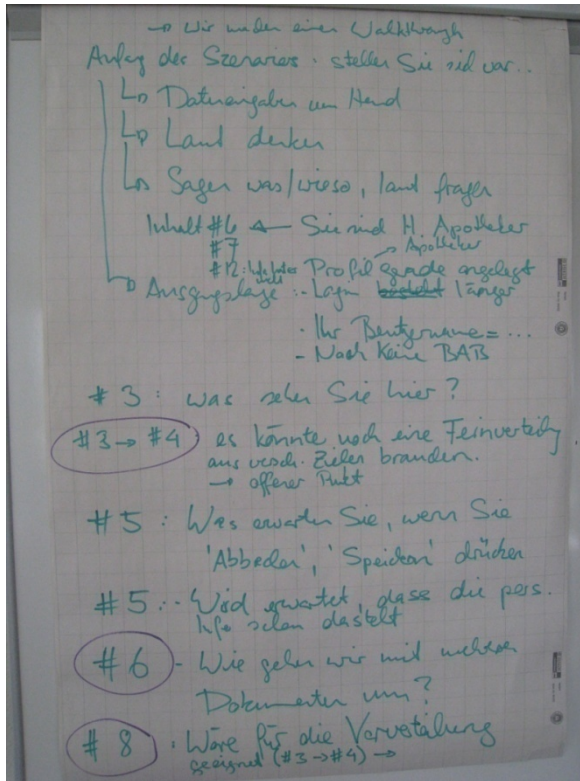 → Wir machen einen Walkthrough
Anfang des Szenarios. stellen Sie sich vor...
Dateneingaben um Hand
Laut denken
Sagen was/wieso, laut fragen
Inhalt #6 ← Sie sind H. Apotheker
#7 → Apotheker
#12: Profil gerade angelegt
Ausgangslage :- Login besteht länger
· Ihr Benutzername = ...
- Noch keine BAB
#3: was sehen Sie hier?
#3 → #4 es könnte noch eine Feinverteilung
aus versch. Zielen brauchen.
→ offener Punkt
#5: Was erwarten Sie, wenn Sie
'Abbrechen', 'Speichern' drücken
#5:- Wird erwartet, dass die pers.
Info schon dasteht
#6 - Wie gehen wir mit mehreren
Dokumenten um?
#8: Wäre für die Vorverteilung
geeignet (#3 → #4) →